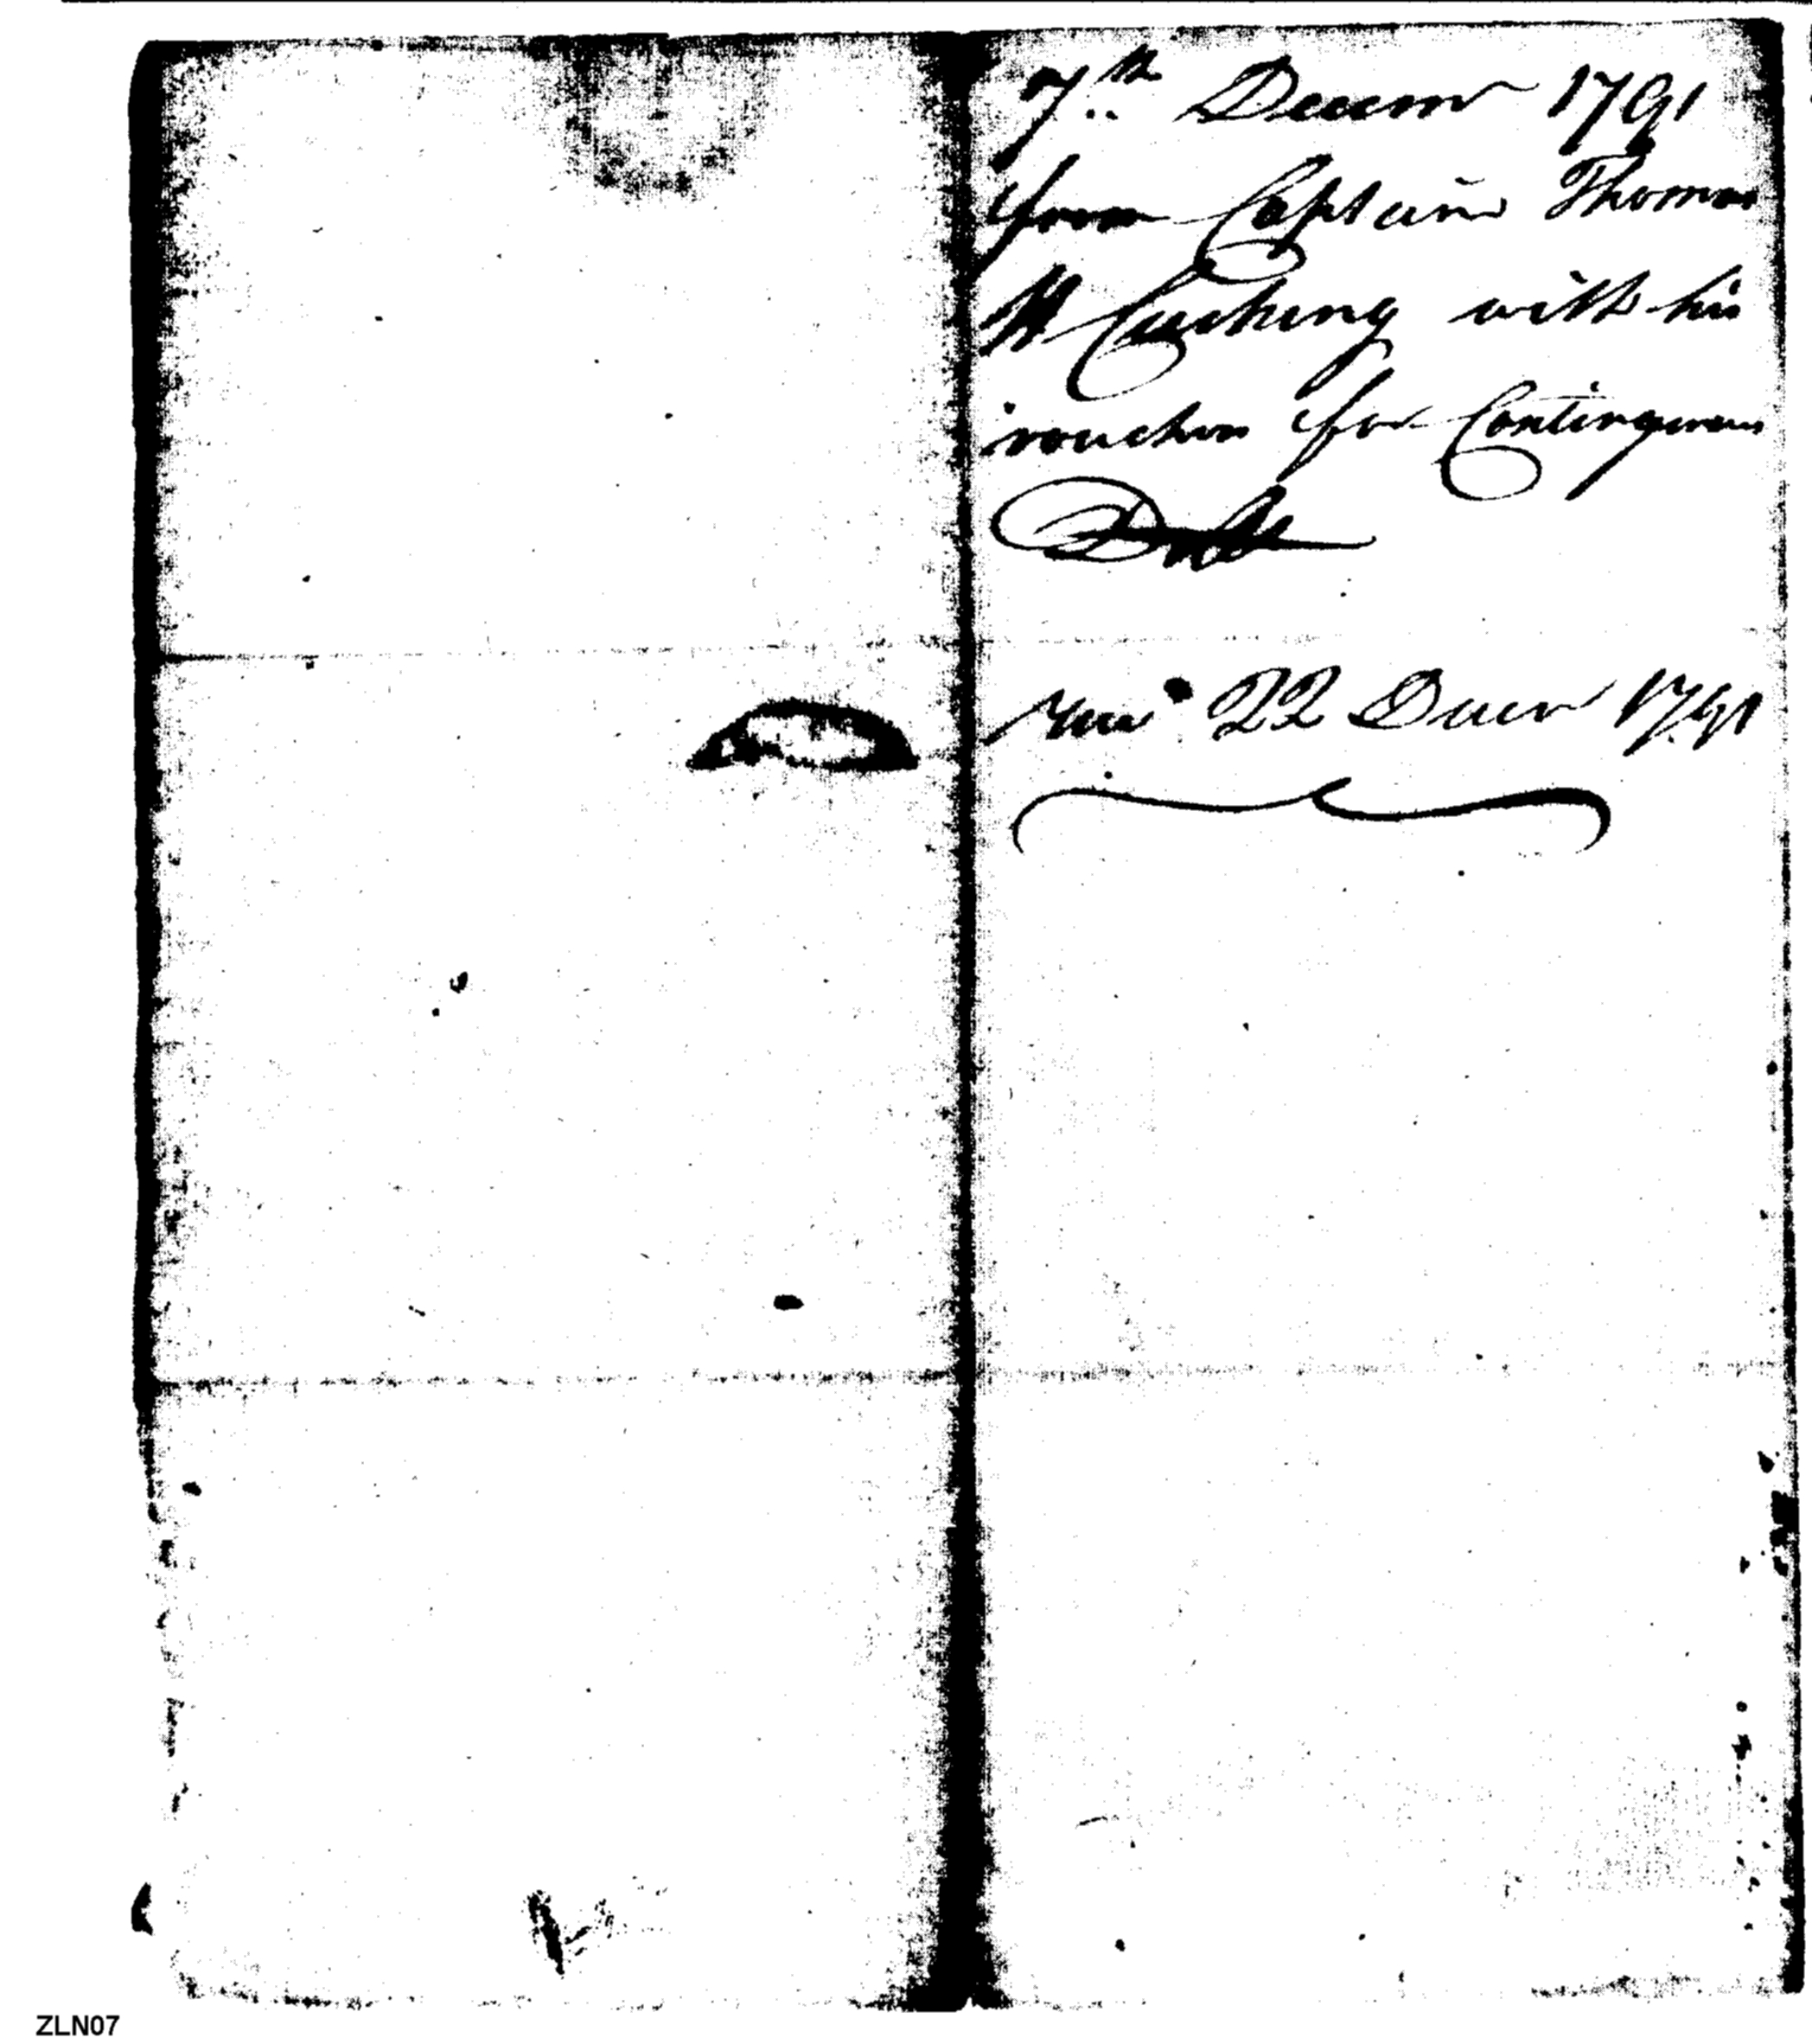 7th Decemr 1791
from Captain Thomas
H Cushing with his
vouchers for Contingencies
22 Decer 1791
ZLN07